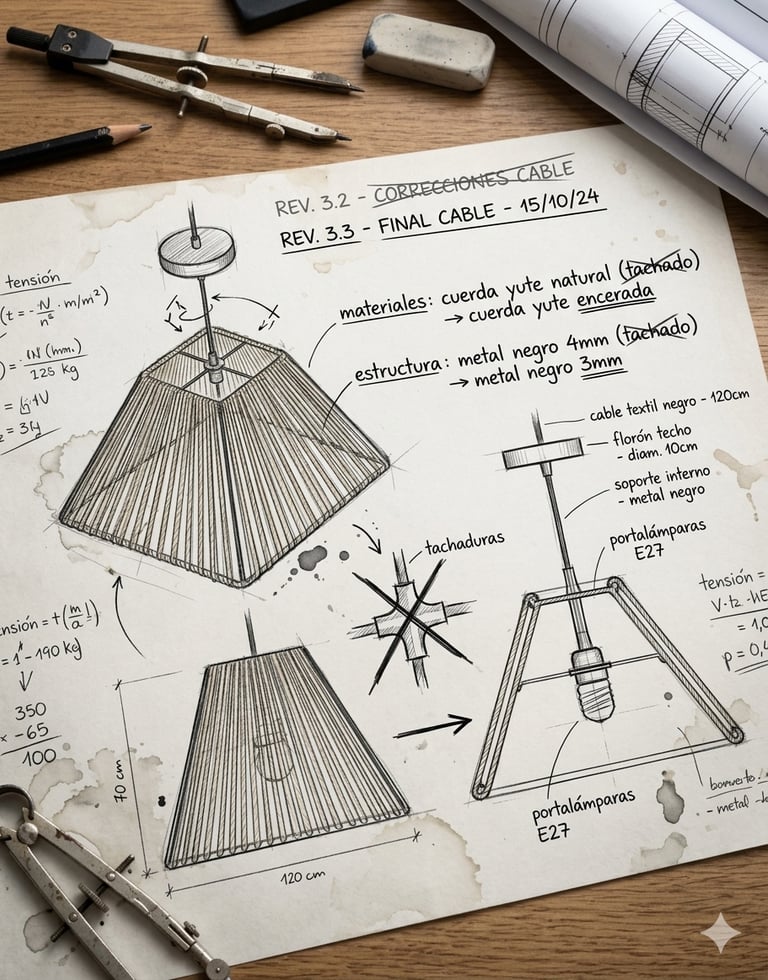 REV. 3.2 - CORRECCIONES CABLE
REV. 3.3 - FINAL CABLE - 15/10/24
materiales: cuerda yute natural (tachado)
→ cuerda yute encerada
estructura: metal negro 4mm (tachado)
→ metal negro 3mm
tensión
125 kg
cable textil negro - 120cm
florón techo
- diam. 10cm
soporte interno
- metal negro
portalámparas
E27
tachaduras
= 1 - 190 kg
350
x -65
100
70 cm
120 cm
portalámparas
E27
tensión =
= 1,0
p = 0,4
- metal